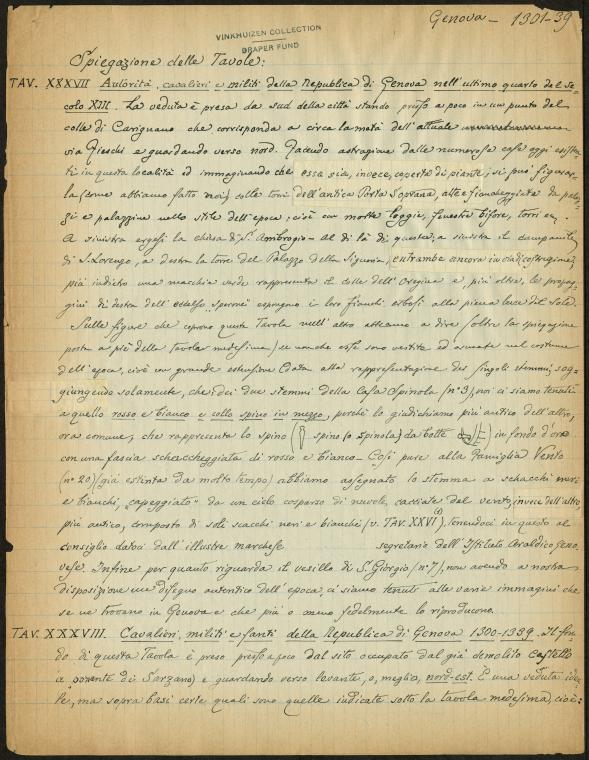 Genova — 1301-39
VINKHUIZEN COLLECTION
DRAPER FUND
Spiegazione delle Tavole:
TAV. XXXVII Autorità, cavalieri e militi della Repubblica di Genova nell'ultimo quarto del se-
colo XIII. La veduta è presa da sud della città stando presso a poco in un punto del
colle di Carignano che corrisponda a circa la metà dell'attuale
via Fieschi e guardando verso nord. Facendo astrazione dalle numerose case oggi esisten-
ti in questa località ed immaginando che essa sia, invece, coperta di piante, si può figurar-
la (come abbiamo fatto noi) colle torri dell'antica Porta Soprana, alte e fiancheggiate da palaz-
zi e palazzine nello stile dell'epoca; cioè con molte loggie, finestre bifore, torri ecc.
A sinistra ergesi la chiesa di S. Ambrogio – Al di là di questa, a sinistra il campanile
di S. Lorenzo, a destra la torre del Palazzo della Signoria, entrambe ancora in via di costruzione;
più indietro una macchia verde rappresenta il colle dell' e, più oltre, le propag-
gini di destra dell'estesso "sperone" espongono i loro fianchi erbosi alla piena luce del sole.
Sulle figure che coprono questa Tavola null'altro abbiamo a dire (oltre la spiegazione
posta a piè della tavola medesima) se non che esse sono vestite ed armate nel costume
dell'epoca, cioè con grande estensione data alla rappresentazione dei singoli stemmi, sog-
giungendo solamente, che dei due stemmi della Casa Spinola (n° 3), noi ci siamo tenuti
a quello rosso e bianco e collo spino in mezzo, perchè lo giudichiamo più antico dell'altro,
ora comune, che rappresenta lo spino ( spino (o spinola) da botte ) in fondo d'oro
con una fascia scaccheggiata di rosso e bianco – Così pure alla famiglia Vento
(n° 20) (già estinta da molto tempo) abbiamo assegnato lo stemma a scacchi neri
e bianchi, "capeggiato" da un cielo cosparso di nuvole cacciate dal vento, invece dell'altro,
più antico, composto di soli scacchi neri e bianchi (v. TAV. XXVI), tenendoci in questo al
consiglio datoci dall'illustre marchese segretario dell'Istituto Araldico Geno-
vese. Infine per quanto riguarda il vessillo di S. Giorgio (n° 7), non avendo a nostra
disposizione un disegno autentico dell'epoca, ci siamo tenuti alle varie immagini che
se ne trovano in Genova e che più o meno fedelmente lo riproducono.
TAV. XXXVIII. Cavalieri, militi e fanti della Repubblica di Genova 1300-1339. Il fon-
do di questa Tavola è preso presso a poco dal sito occupato dal già demolito Castello
(a ponente di Sarzano) e guardando verso levante, o, meglio, nord-est. È una veduta idea-
le, ma sopra basi certe quali sono quelle indicate sotto la tavola medesima, cioè: